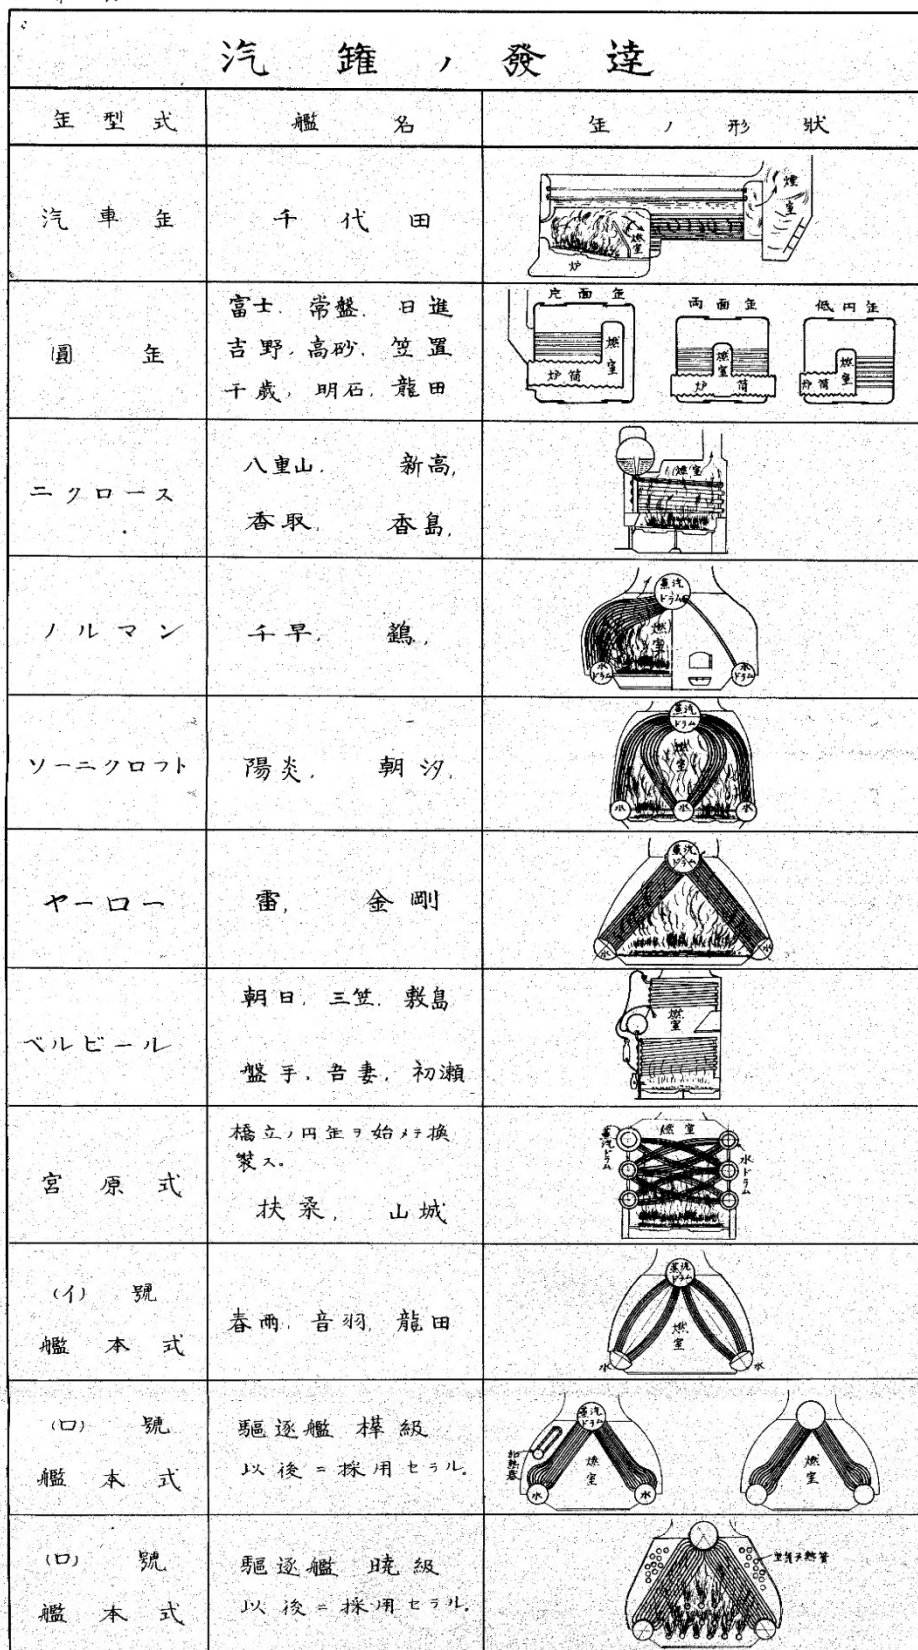 汽罐ノ發達
缶型式
艦名
缶ノ形狀
汽車缶
千代田
煙室
燃室
炉
圓缶
富士. 常盤. 日進
吉野. 高砂. 笠置
千歳. 明石. 龍田
片面缶
両面缶
低円缶
燃室
炉筒
燃室
炉筒
燃室
炉筒
ニクロース
八重山. 新高,
香取, 香島,
燃室
ノルマン
千早, 鶴,
蒸汽ドラム
燃室
水ドラム
水ドラム
ソーニクロフト
陽炎, 朝汐,
蒸汽ドラム
燃室
水
水
水
ヤーロー
雷, 金剛
蒸汽ドラム
水
水
ベルビール
朝日, 三笠, 敷島
盤手, 吾妻, 初瀬
燃室
宮原式
橋立ノ円缶ヲ始メテ換
装ス。
扶桑, 山城
蒸汽ドラム
燃室
水ドラム
(イ)號
艦本式
春雨, 音羽, 龍田
蒸汽ドラム
燃室
水
水
(ロ)號
艦本式
驅逐艦 樺級
以後ニ採用セラル.
蒸汽ドラム
燃室
水
水
燃室
(ロ)號
艦本式
驅逐艦 暁級
以後ニ採用セラル.